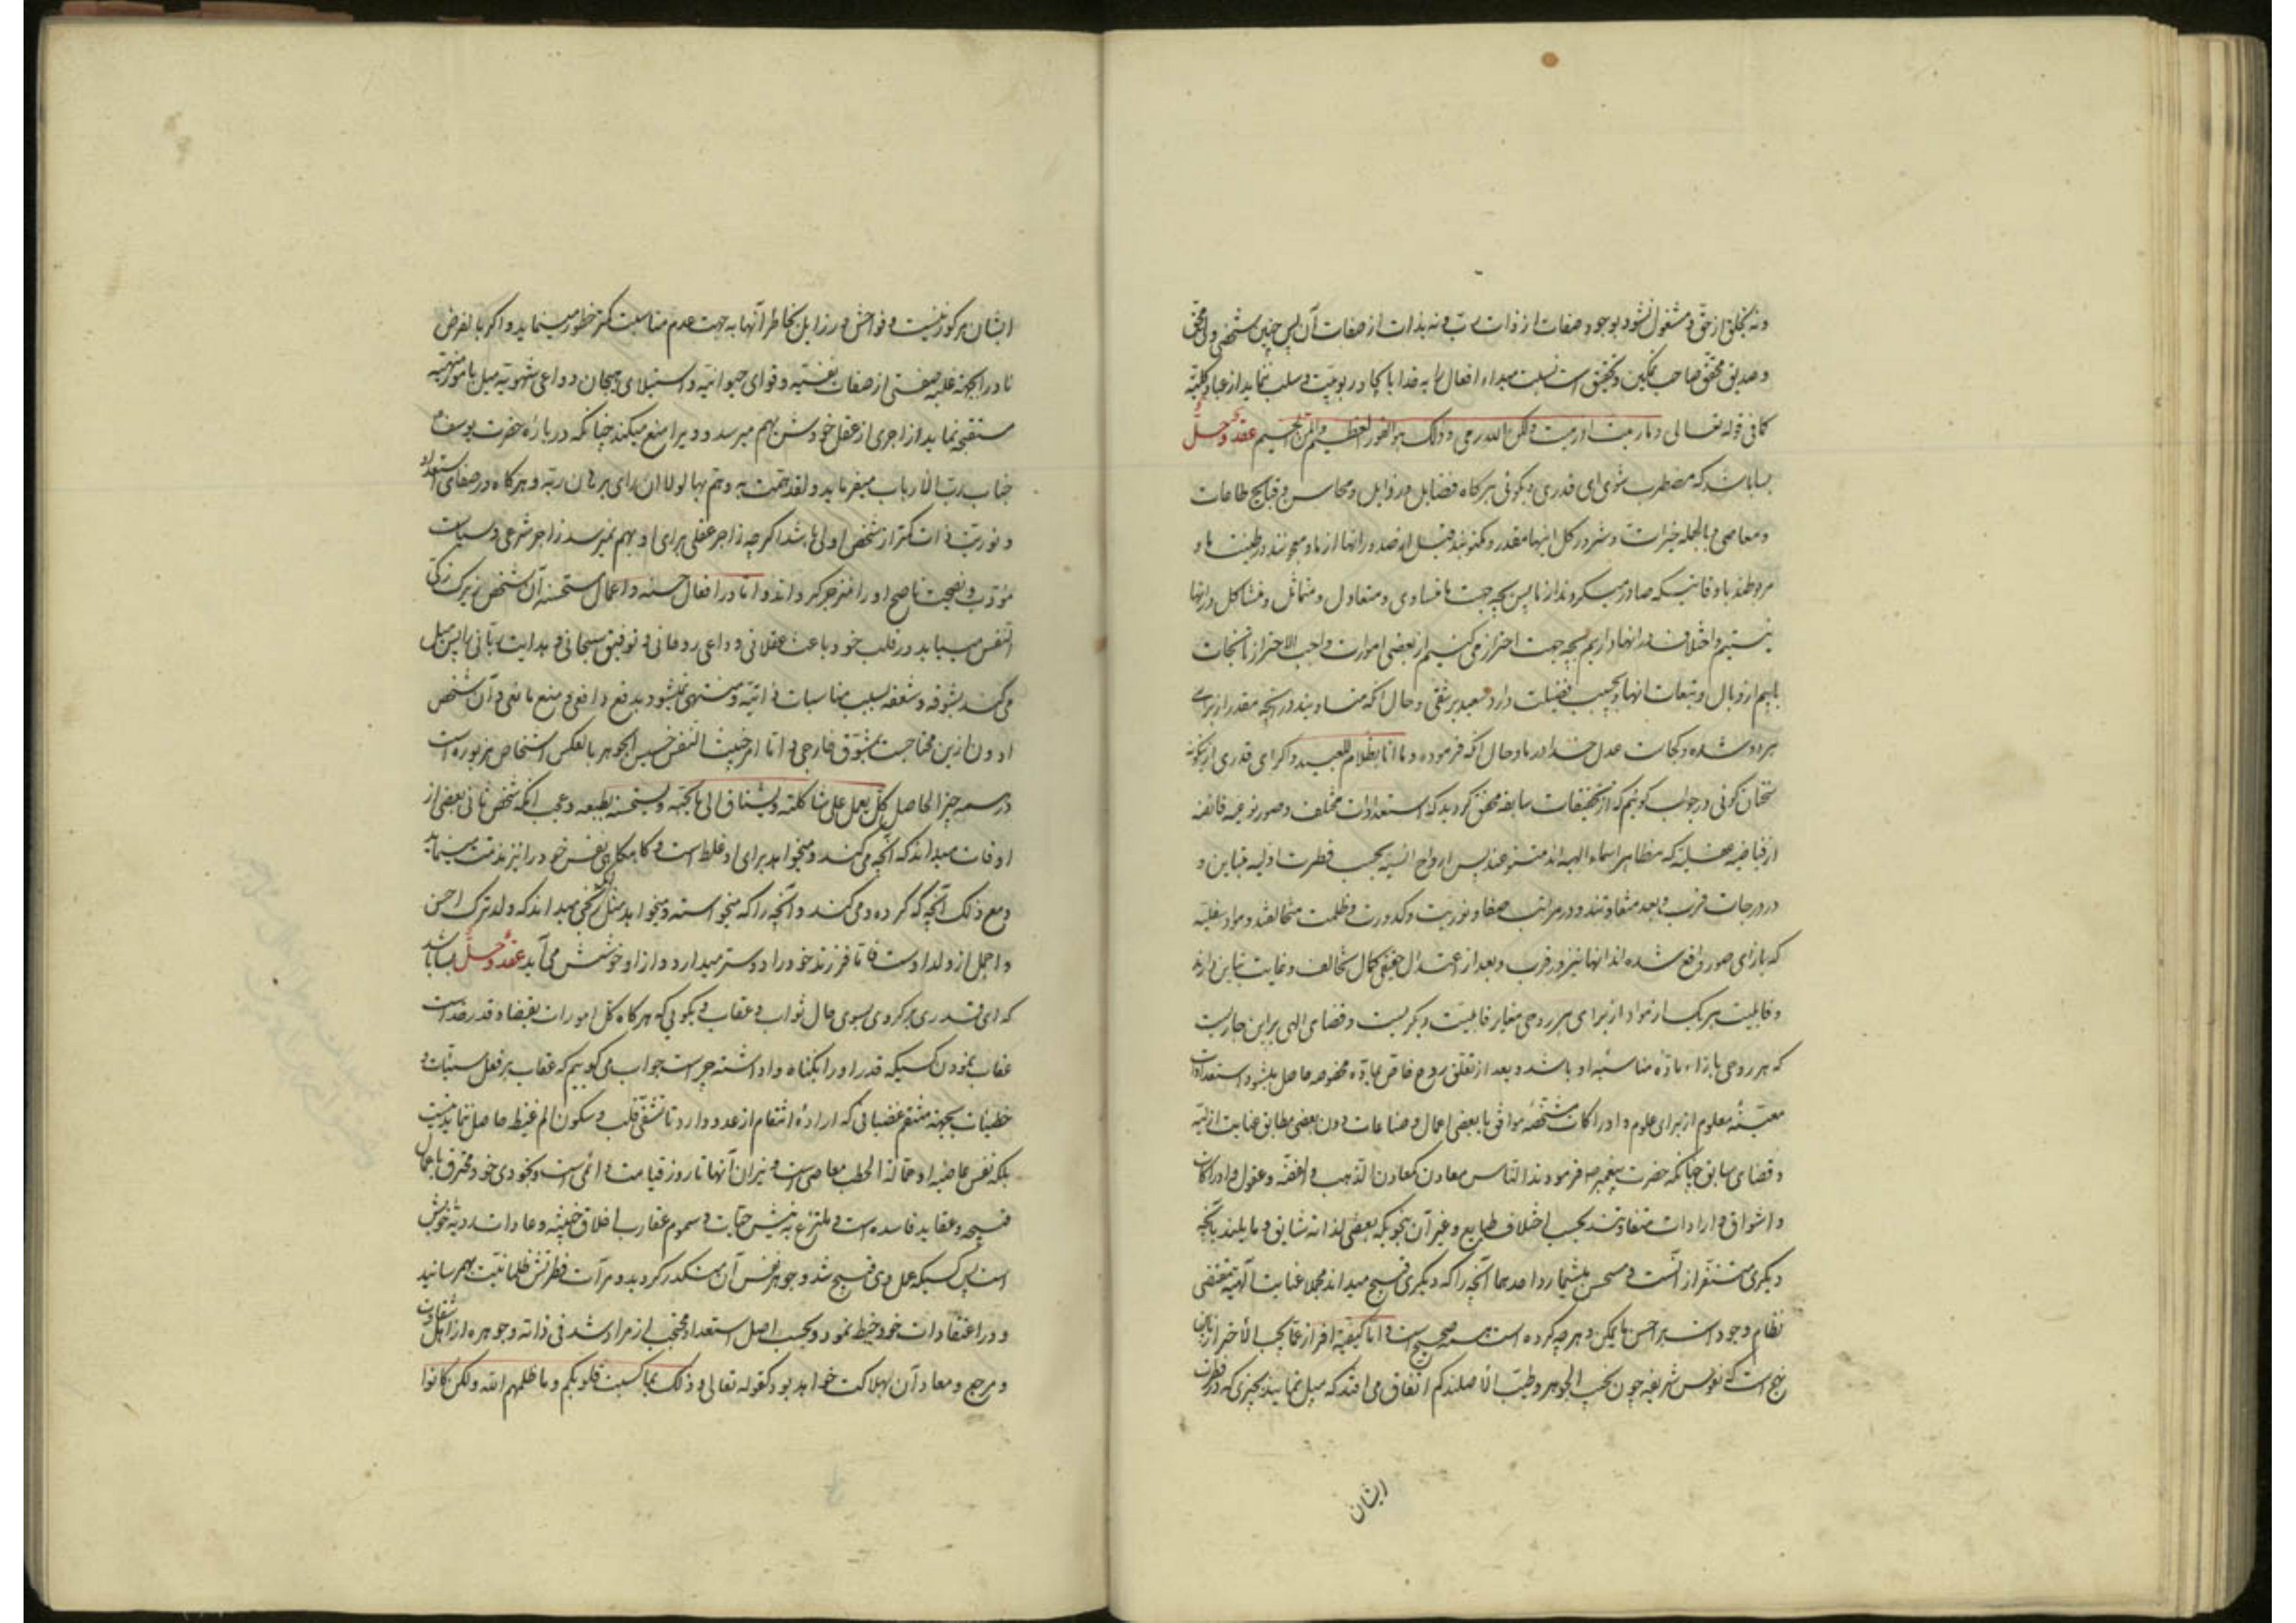 ونه بخلق از حق و مشغول نشود بوجود صفات از ذات بحت و نه بذات از صفات آن پس چنین شخصی ولی محق
و صدیق محقق صاحب تمکین و تحقیق است نسبت میدهد افعال را به خدا بایجاد ربوبیت و سلب نماید از عباد بکلیه
کما فی قوله تعالی و ما رمیت اذ رمیت ولکن الله رمی و ذلک هو الفوز العظیم و المن الجسیم عقد و حل
بسا باشد که مضطرب شوی ای قدری و بگوئی هر کاه فضایل و رذایل و محاسن و قبایح طاعات
و معاصی و بالجمله خیرات و شرور کل اینها مقدر و مکتوبند قبل از صدور انها از ما و معجونند در طینت ها و
مربوطند باوقاتیکه صادر میگردند از ما پس بچه جهت ما متساوی و متعادل و متماثل و متشاکل در انها
نیستیم و اختلاف در انها داریم بچه جهت احتراز می کنیم از بعضی امورات واجب الاحتراز تا نجات
یابیم از وبال و تبعات انها و بچه سبب فضیلت دارد سعید بر شقی و حال آنکه متساویند در آنچه مقدر از برای
هر دو شده و کجاست عدل خدا در ما و حال آنکه فرموده و ما انا بظلام للعبید و اگر ای قدری از اینگونه
سخنان گوئی در جواب گوئیم که از تحقیقات سابقه محقق گردید که استعدادات مختلف و صور نوعیه فائضه
از فیاضیه عقلیه که مظاهر اسماء الهیه اند متنوعند پس ارواح انسیه بحسب فطرت اولیه متباین و
در درجات قرب و بعد متفاوتند و در مراتب صفا و نوریت و کدورت و ظلمت متخالفند و مواد سفلیه
که بازای صور واقع شده اند انها نیز در قرب و بعد از اعتدال حقیقی کمال تخالف و غایت تباین دارند
و قابلیت هر یک از مواد از برای هر روحی مغایر قابلیت دیگریست و قضای الهی بر این جاریست
که هر روحی بازاء ماده مناسبه او باشد و بعد از تعلق روح خاص بماده مخصوصه حاصل میشود استعدادات
معینه معلوم از برای علوم و ادراکات مشخصه موافق با بعضی اعمال و صناعات دون بعضی مطابق عنایت ازلیه
و قضای سابق چنانکه حضرت پیغمبر ص فرمودند الناس معادن کمعادن الذهب و الفضة و عقول و ادراکات
و اشواق و ارادات متفاوتند بحسب اختلاف طبایع و غیر آن بنحویکه بعضی لذاته شایق و مایلند بآنچه
دیگری متنفر از آنست و مستحسن میشمارد احدهما آنچه را که دیگری قبیح میداند مجملا عنایت الهیه مقتضی
نظام وجود است بر احسن ما یمکن و هر چه کرده است همه صحیح است و اما کیفیة افراز عما یجب الاحتراز باین
نهج است که نفوس شریفه چون نجیب الجوهر و طیب الاصلند کم اتفاق می افتد که میل نمایند بچیزی که در فطرت
ایشان
ایشان مرکوز نیست و فواحش و رذایل بخاطر آنها به جهت عدم مناسبت کمتر خطور مینماید و اگر بالفرض
نادرا بجهة غلبه صفتی از صفات نفسیه و قوای حیوانیه و استیلای هیجان دواعی شهویه میل بامور منهیه
مستقبحه نماید زاجری از عقل خودش بهم میرسد و ویرا منع میکند چنانکه درباره حضرت یوسف ع
جناب رب الارباب میفرماید و لقد همت به و هم بها لولا ان رای برهان ربه و هرگاه در صفای استعداد
و نوریت ذات کمتر از شخص اولی باشد اگر چه زاجر عقلی برای او بهم نمیرسد زاجر شرعی و سیاست
مؤدب و نصیحت ناصح او را منزجر گرداند و اما در افعال حسنه و اعمال مستحسنه آن شخص زیرک زکی
النفس مییابد در قلب خود باعث عقلانی و داعی روحانی و توفیق سبحانی و هدایت ربانی را پس میل
می کند بشوقه و شعفه بسبب مناسبات ذاتیه و منتهی نمیشود بدفع دافعی و منع مانعی و آن شخص
ادون ازین محتاجست بمشوق خارجی و اما امر خبیث النفس خسیس الجوهر بالعکس اشخاص مزبوره است
در همه چیز الحاصل کل یعمل علی شاکلته و یشتاق الی ما یحبه و یستحسنه بطبعه و عجب انکه شخص ثانی بعضی از
اوقات میداند که آنچه می کند و میخواهد برای او غلط است و گاه گاهی نفس خود را نیز مذمت مینماید
و مع ذلک آنچه که کرده و می کند و آنچه را که میخواسته و میخواهد مثل زنگی میداند که ولد ترک احسن
و اجمل از ولد اوست تا فرزند خود را دوستر میدارد و از او خوشش می آید عقد و حل بسا باشد
که ای قدری برگردی بسوی حال ثواب و عقاب و بگوئی که هر گاه کل امورات بقضا و قدر خداست
عقاب نمودن کسیکه قدر او را بگناه واداشته چراست جواب می گوییم که عقاب بر فعل سیئات و
خطیئات بجهة منتقم غضبانی که اراده انتقام از عدو دارد تا تشفی قلب و سکون الم غیظ حاصل نماید نیست
بلکه نفس عاصیه او حمالة الحطب معاصی است و نیران آنها تا روز قیامت دائمی است و بخودی خود محترق باعمال
قبیحه و عقاید فاسده است و ملتزع به نیش حیات و سموم عقارب اخلاق خبیثه و عادات ردیه خویش
است پس کسیکه عمل وی قبیح شد و جوهر نفس آن متکدر گردید و مرآت فطرتش ظلمانیت بهم رسانید
و در اعتقادات خود خبط نمود و بحسب اصل استعداد محتجب از مراد شد فی ذاته و جوهره از اهل شقاوت
و مرجع و معاد آن بهلاکت خواهد بود کقوله تعالی و ذلک بما کسبت قلوبکم و ما ظلمهم الله ولکن کانوا